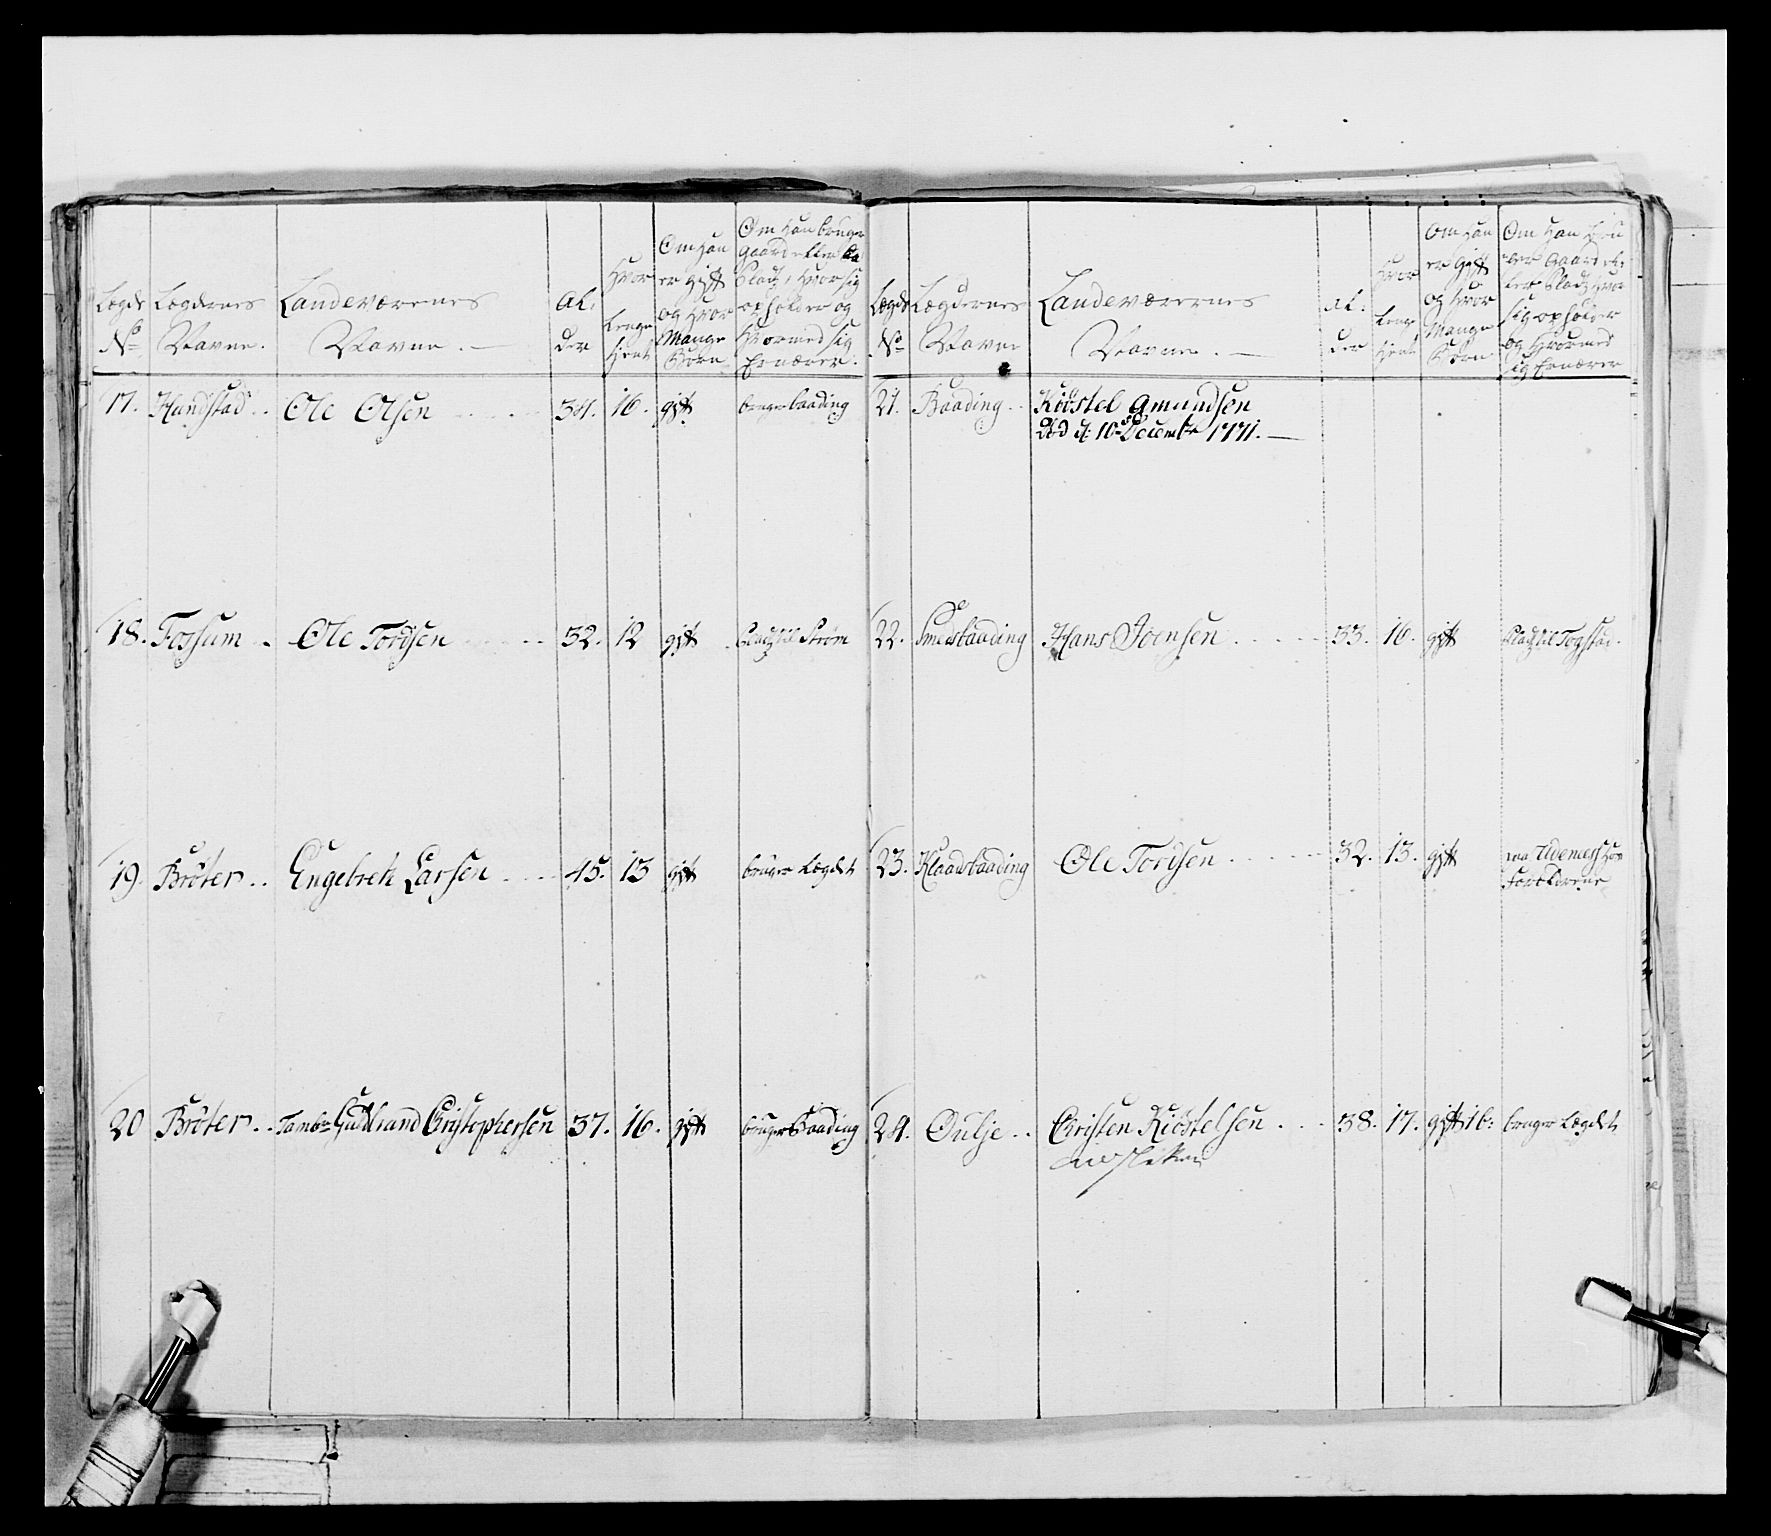 Lægds
No
Lægdernes
Navne.
Landeværenes
Navne. —
Al:
der
Hvor
lenge
tient
Om han
er gift
og Hvor
Mange
Børn
Om han bruger
Gaard eller
Pladz, Hvor sig
opholder og
Hvormed sig
Ernærer.
17. Handstad .. Ole Olsen 34. 16. gift bruger baading
18. Fossum . Ole Tordsen 32. 12 gift Pladz til Strøm
19. Brøter .. Engebret Larsen 45. 13 gift bruger Lægdet
20 Brøter .. Tambr Gudbrand Christophersen 37. 16. gift bruger Baading
Lægds
No
Lægdernes
Navne
Landeværernes
Navne. —
al:
der
Hvor
lenge
tient
Om han
er gift
og Hvor
Mange
Børn
Om han bru
ger Gaard el:
ler Pladz, Hvor
sig opholder
og Hvormed
sig Ernærer
21. Baading .. Kiøstel Amundsen
Død d: 10de Decembr 1771. —
22. Smedsbaading Hans Joensen 33. 16. gift Pladz til Togstad.
23. Klaadbaading Ole Tordsen 32. 13. gift paa Udenes Hos
Foreldrene
24. Øulje .. Christen Kiøstelsen 38. 17. gift 1b: bruger Lægdet